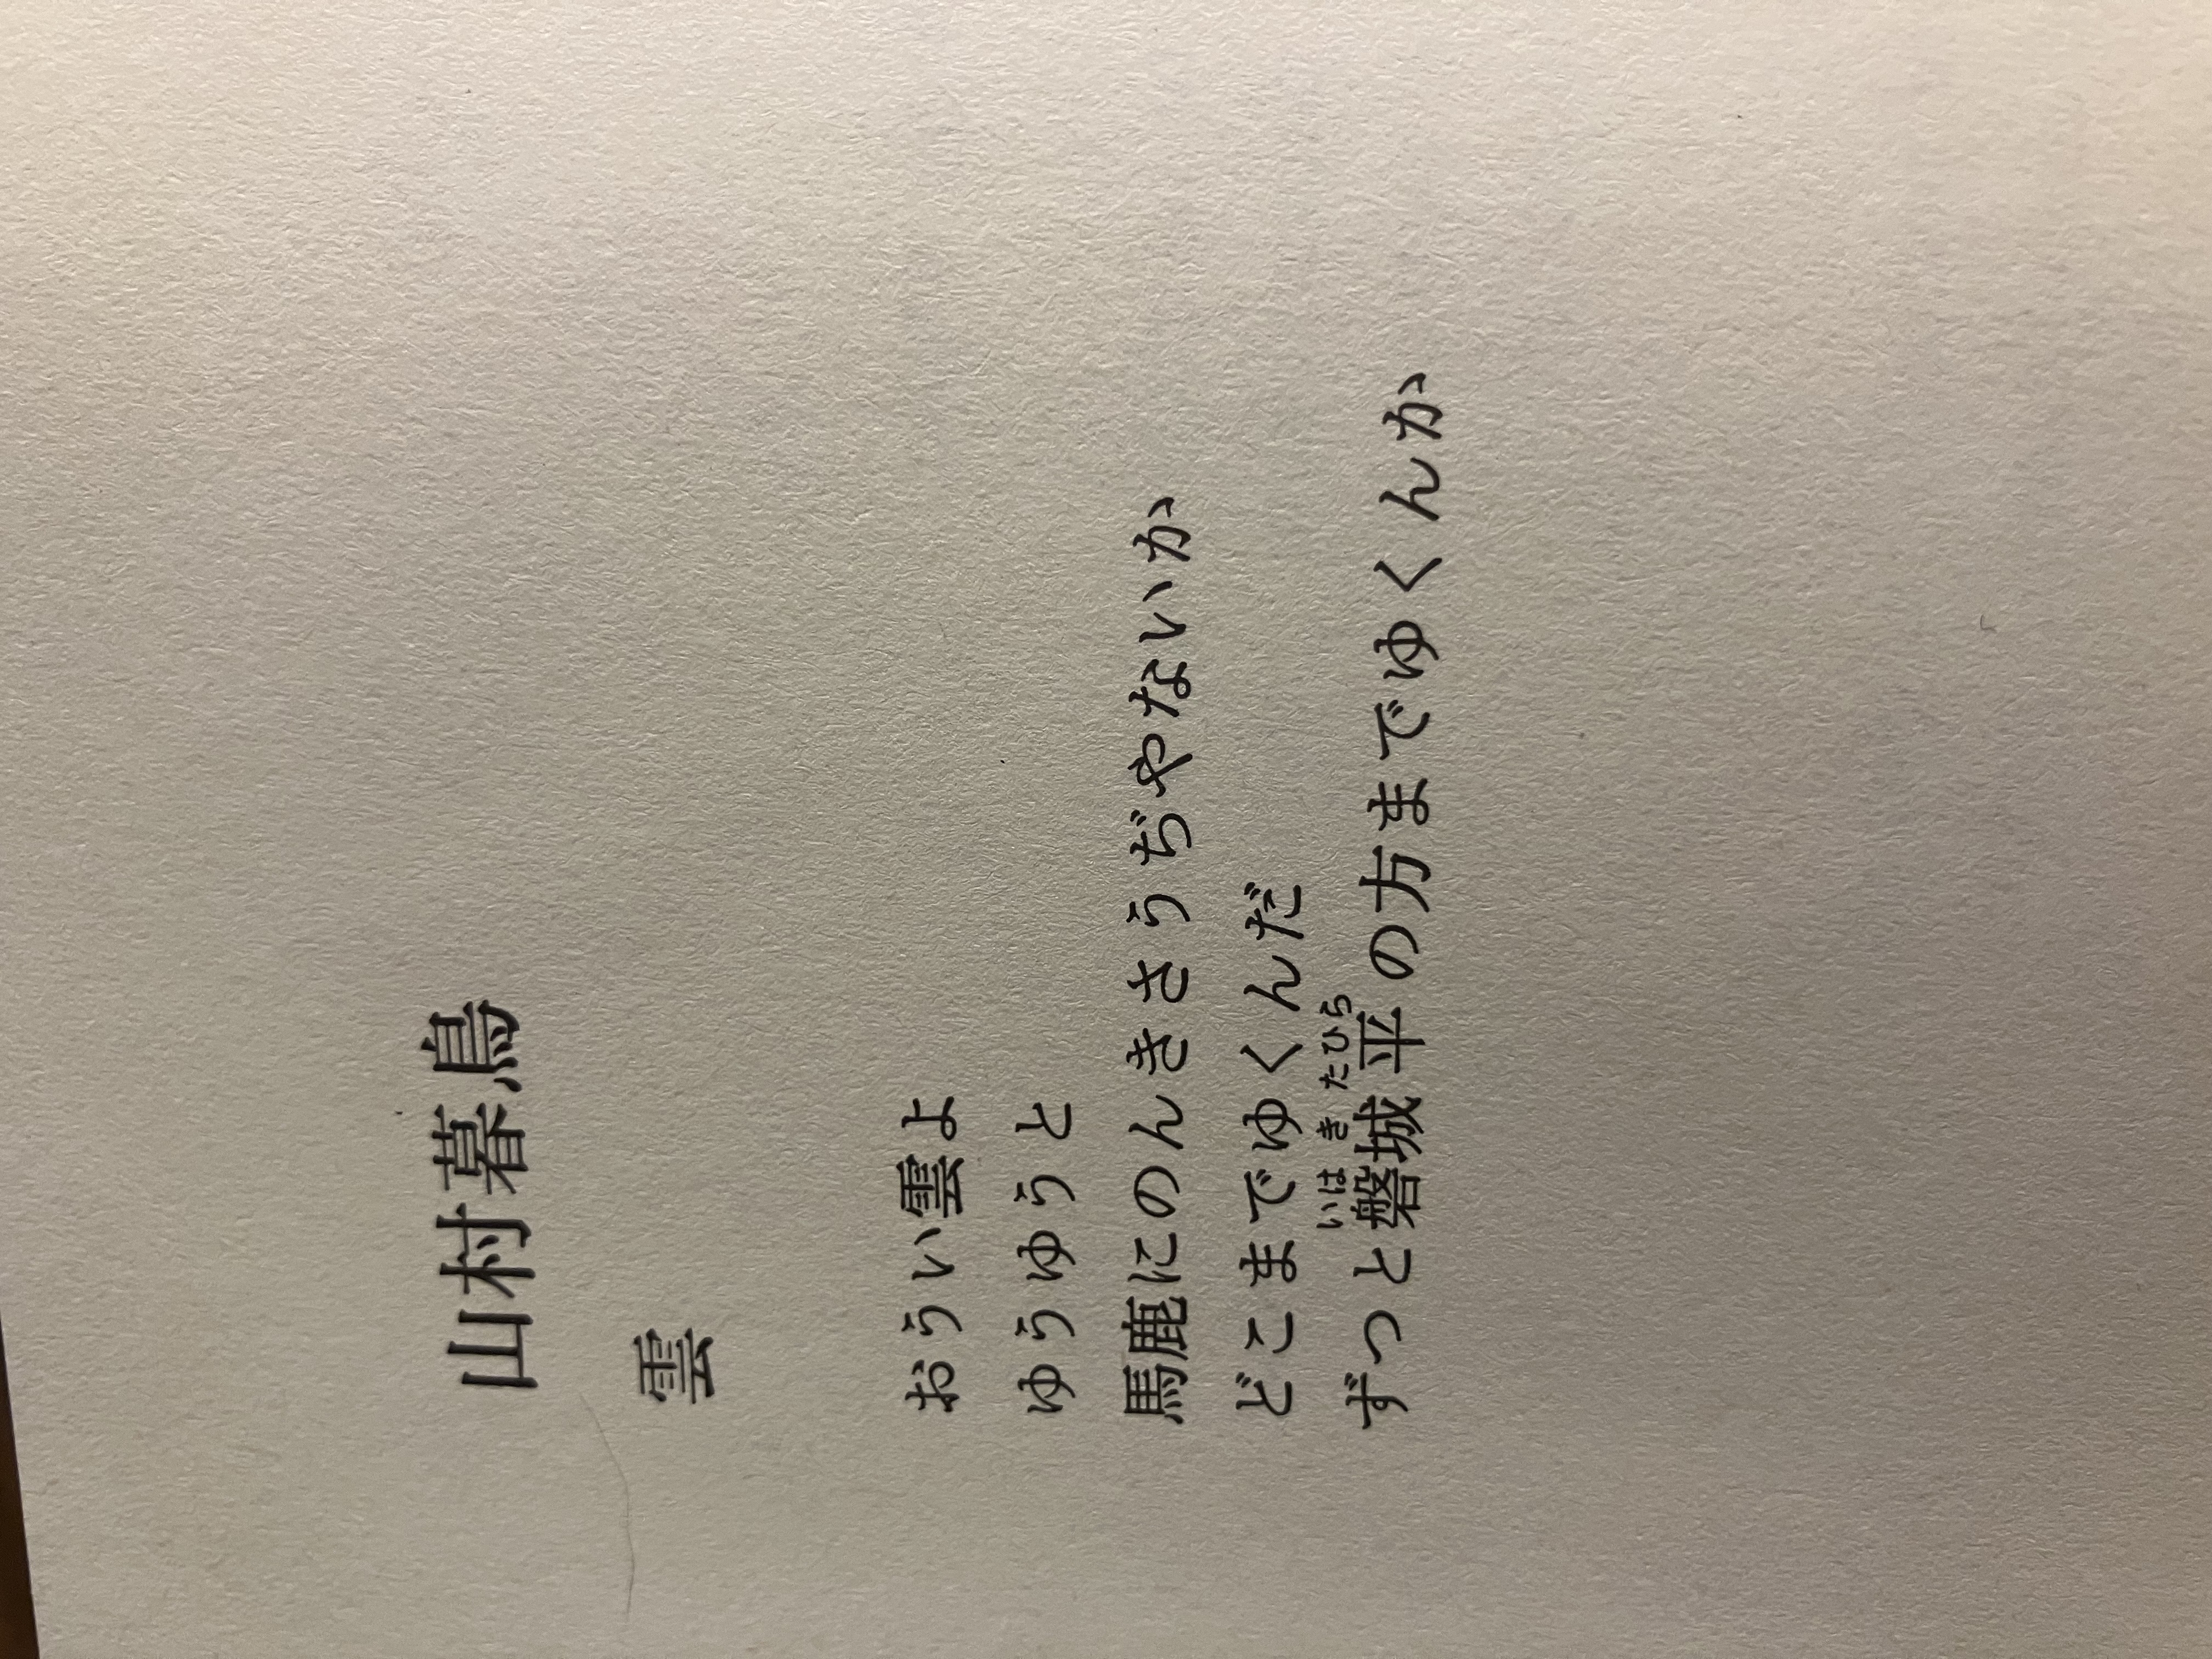 山村暮鳥
雲
おうい雲よ
ゆうゆうと
馬鹿にのんきさうぢやないか
どこまでゆくんだ
ずつと磐城平の方までゆくんか
いはきたひら